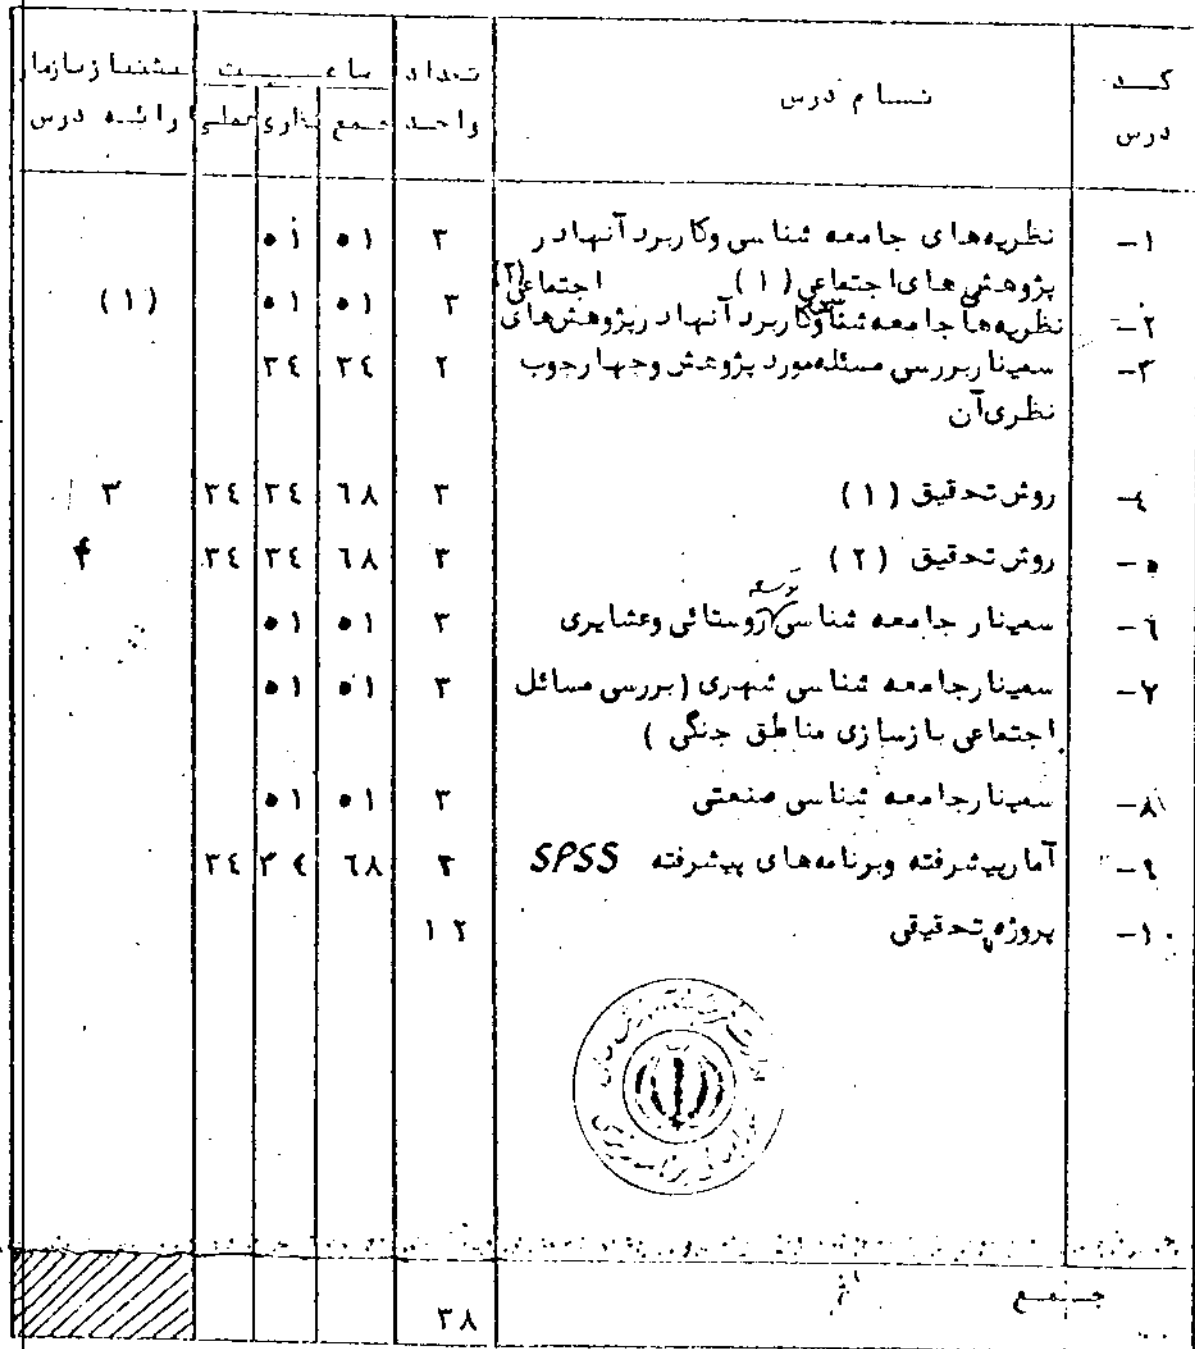 کد درس | نام درس | تعداد واحد | ساعت | جمع | نظری | عملی | پیشنیاز یازمان ارائه درس
۱- نظریه‌های جامعه شناسی وکاربرد آنها در | ۳ | ۵۱ | ۵۱
پژوهش های اجتماعی (۱)
۲- نظریه‌ها جامعه شناسی وکاربرد آنها در پژوهش‌های اجتماعی (۲) | ۳ | ۵۱ | ۵۱ | (۱)
۳- سمینار بررسی مسئله مورد پژوهش وچهارچوب | ۲ | ۳٤ | ۳٤
نظری آن
٤- روش تحقیق (۱) | ۳ | ٦۸ | ۳٤ | ۳٤ | ۳
۵- روش تحقیق (۲) | ۳ | ٦۸ | ۳٤ | ۳٤ | ۴
٦- سمینار جامعه شناسی توسعه روستائی وعشایری | ۳ | ۵۱ | ۵۱
۷- سمینار جامعه شناسی شهری (بررسی مسائل | ۳ | ۵۱ | ۵۱
اجتماعی بازسازی مناطق جنگی )
۸- سمینار جامعه شناسی صنعتی | ۳ | ۵۱ | ۵۱
۹- آمار پیشرفته وبرنامه‌های پیشرفته SPSS | ۳ | ٦۸ | ۳٤ | ۳٤
۱۰- پروژه تحقیقی | ۱۲
جمع | ۳۸